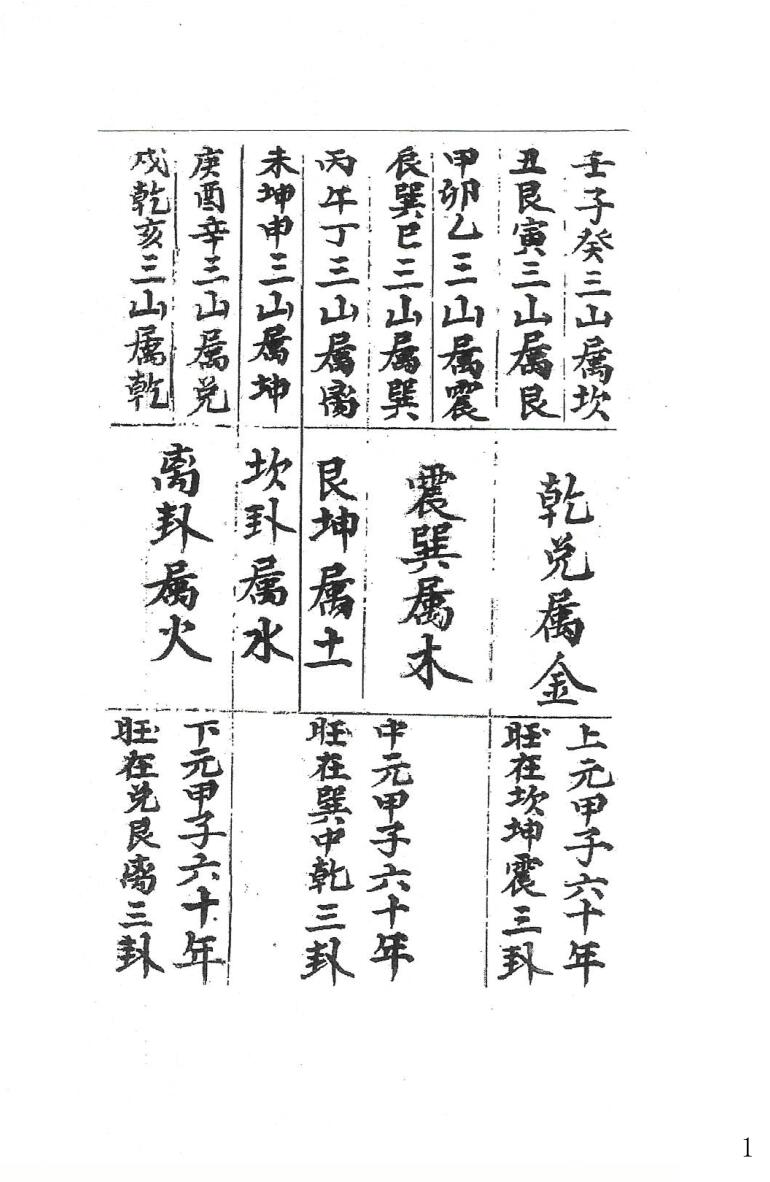 壬子癸三山属坎
丑艮寅三山属艮
甲卯乙三山属震
辰巽巳三山属巽
丙午丁三山属离
未坤申三山属坤
庚酉辛三山属兑
戌乾亥三山属乾
乾兑属金
震巽属木
艮坤属土
坎卦属水
离卦属火
上元甲子六十年
旺在坎坤震三卦
中元甲子六十年
旺在巽中乾三卦
下元甲子六十年
旺在兑艮离三卦
1